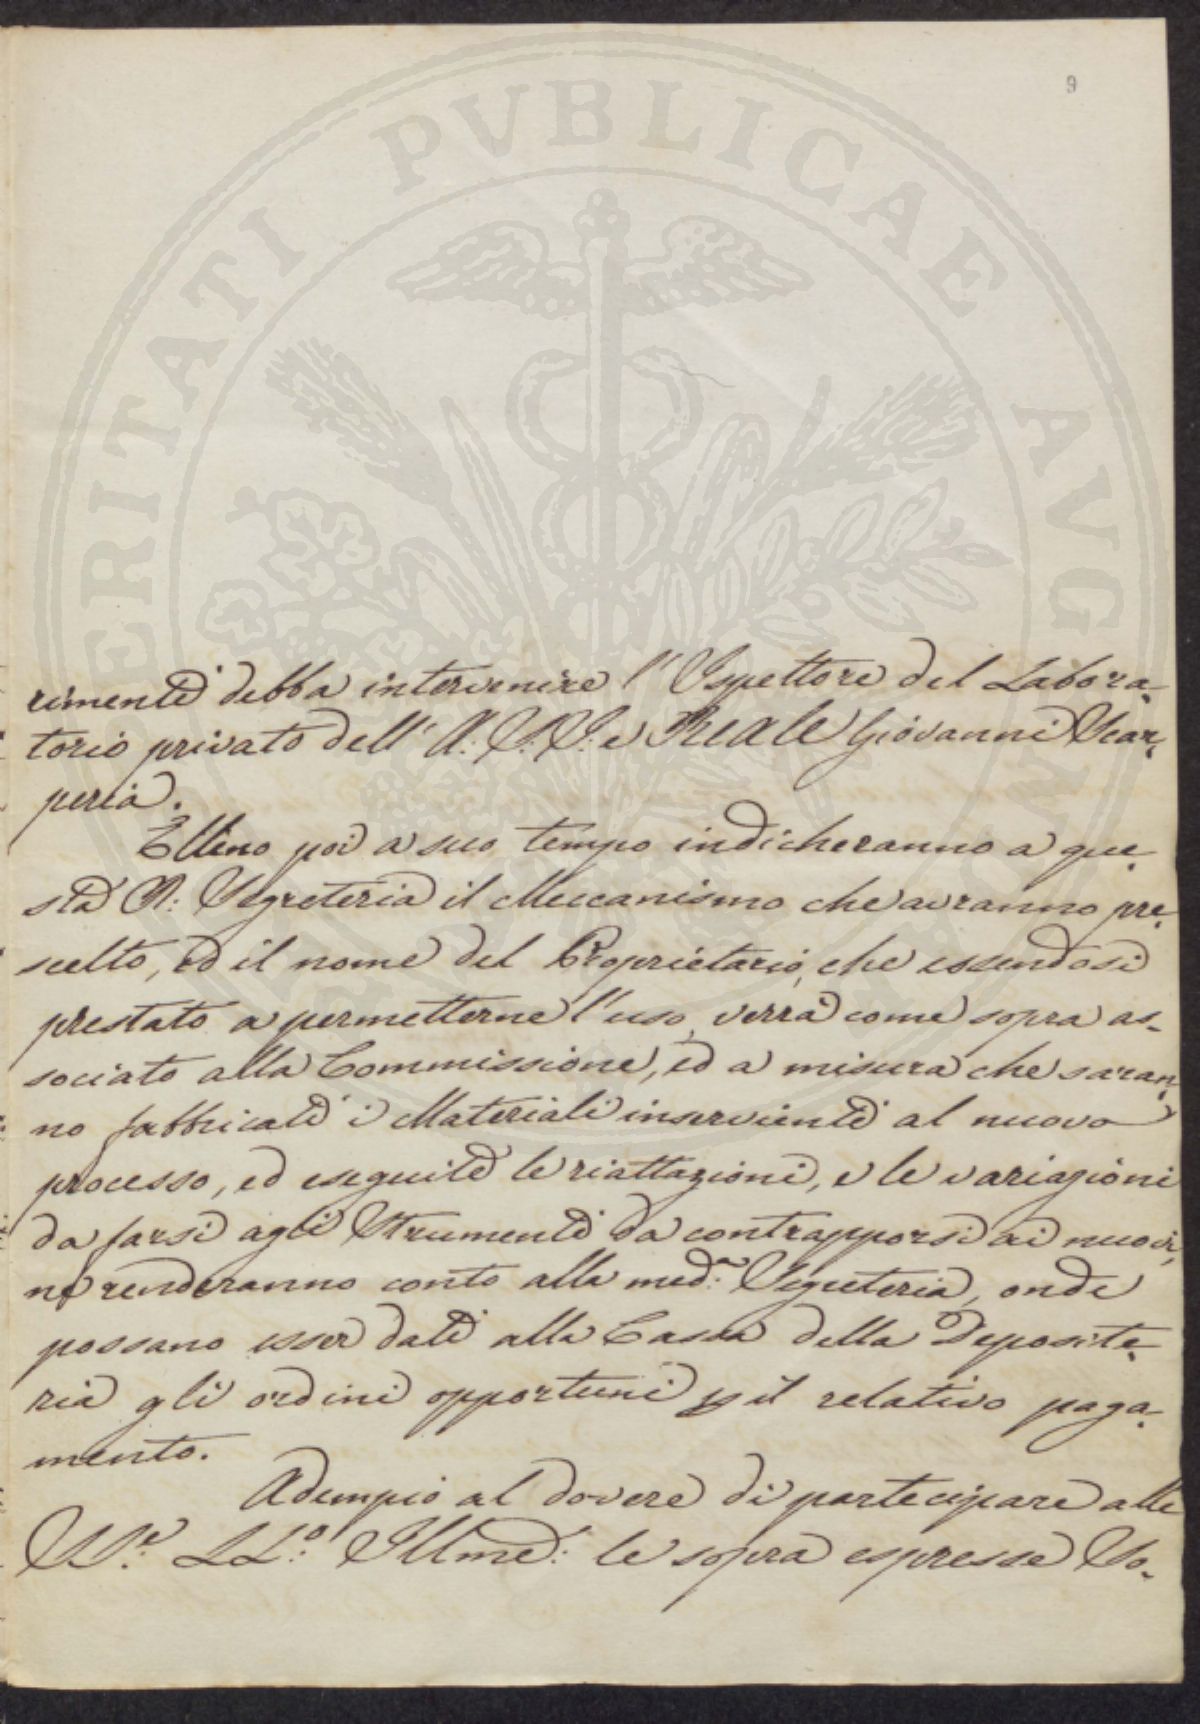 9
PVBLICAE
ERITATI
AVG
rimenti debba intervenire l'Ispettore del Labora-
torio privato dell'A: S: I: e Reale Giovanni Scar-
peria.
Elleno poi a suo tempo indicheranno a que-
sta R: Segreteria il Meccanismo che avranno pre-
scelto, ed il nome del Proprietario, che essendosi
prestato a permetterne l'uso, verrà come sopra as-
sociato alla Commissione, ed a misura che saran-
no fabbricati i Materiali inservienti al nuovo
processo, ed eseguite le riattazioni, e le variazioni
da farsi agli Strumenti da contrapporsi ai nuovi,
ne renderanno conto alla med:ª Segreteria, onde
possano esser dati alla Cassa della Deposite-
ria gli ordini opportuni p il relativo paga-
mento.
Adempio al dovere di partecipare alle
SS.e LL:o Illme: le sopra espresse So-